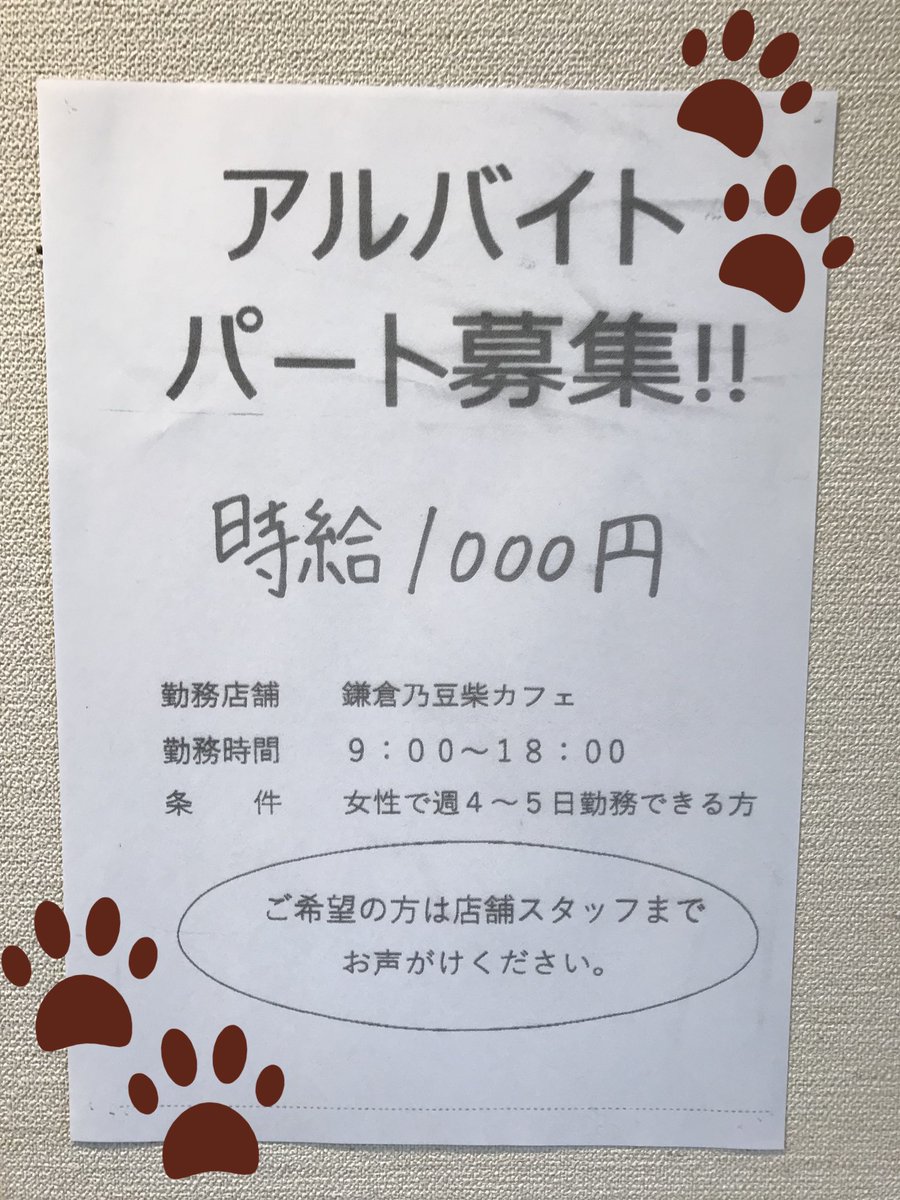 アルバイト
パート募集!!
時給1000円
勤務店舗 鎌倉乃豆柴カフェ
勤務時間 ９：００～１８：００
条 件 女性で週４～５日勤務できる方
ご希望の方は店舗スタッフまで
お声がけください。